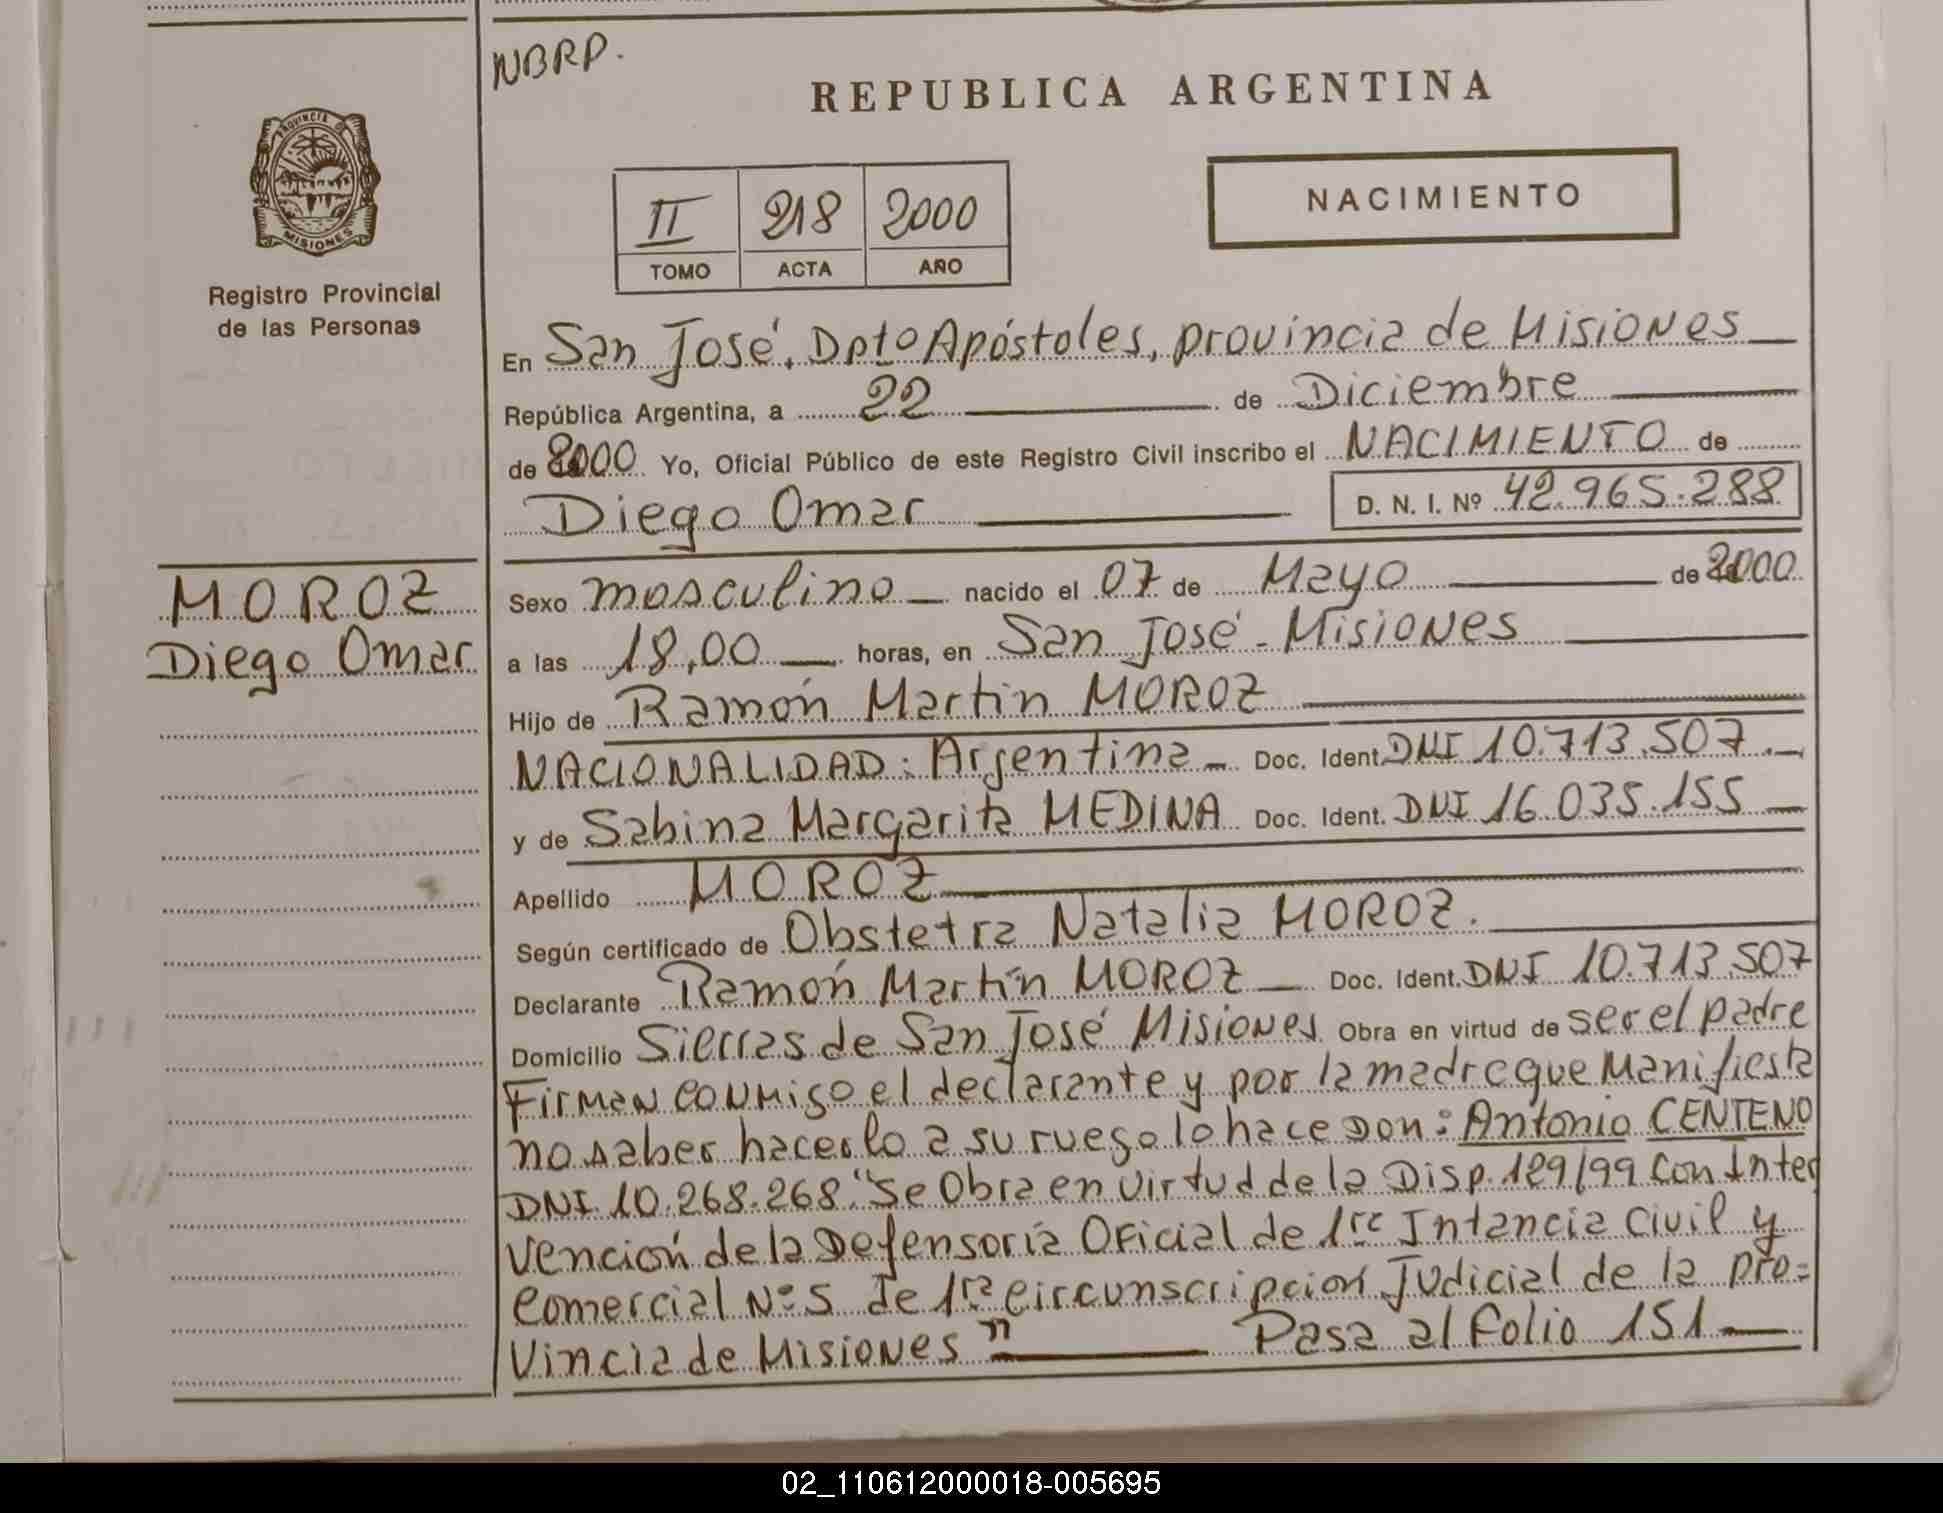 NBRP.
REPUBLICA ARGENTINA
PROVINCIA DE
MISIONES
Registro Provincial
de las Personas
II 218 2000
TOMO ACTA AÑO
NACIMIENTO
En San José. Dpto Apóstoles, provincia de Misiones
República Argentina, a 22 de Diciembre
de 2000 Yo, Oficial Público de este Registro Civil inscribo el NACIMIENTO de
Diego Omar D. N. I. Nº 42.965.288
MOROZ
Diego Omar
Sexo masculino nacido el 07 de Mayo de 2000
a las 18,00 horas, en San José - Misiones
Hijo de Ramón Martin MOROZ
NACIONALIDAD: Argentina Doc. Ident. DNI 10.713.507.
y de Sabina Margarita MEDINA Doc. Ident. DNI 16.035.155
Apellido MOROZ
Según certificado de Obstetra Natalia MOROZ.
Declarante Ramón Martín MOROZ Doc. Ident. DNI 10.713.507
Domicilio Sierras de San José Misiones Obra en virtud de ser el padre
Firman conmigo el declarante y por la madre que manifiesta
no saber hacerlo a su ruego lo hace Don: Antonio CENTENO
DNI 10.268.268 "Se Obra en virtud de la Disp. 129/99 Con Inter
vención de la Defensoría Oficial de 1ra Intancia Civil y
Comercial Nº 5 de 1ra Circunscripción Judicial de la pro=
vincia de Misiones" Pasa al folio 151
02_110612000018-005695